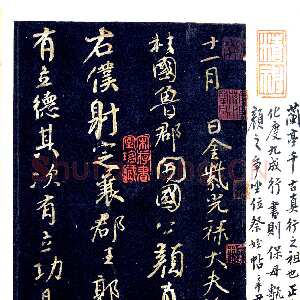 蘭亭千古真行之祖也正
化度九成行書則保母
顏之爭坐位祭姪帖
十一月 日金紫光祿大夫
柱國魯郡開國公顏
右僕射定襄郡王郭
有立德其次有立功